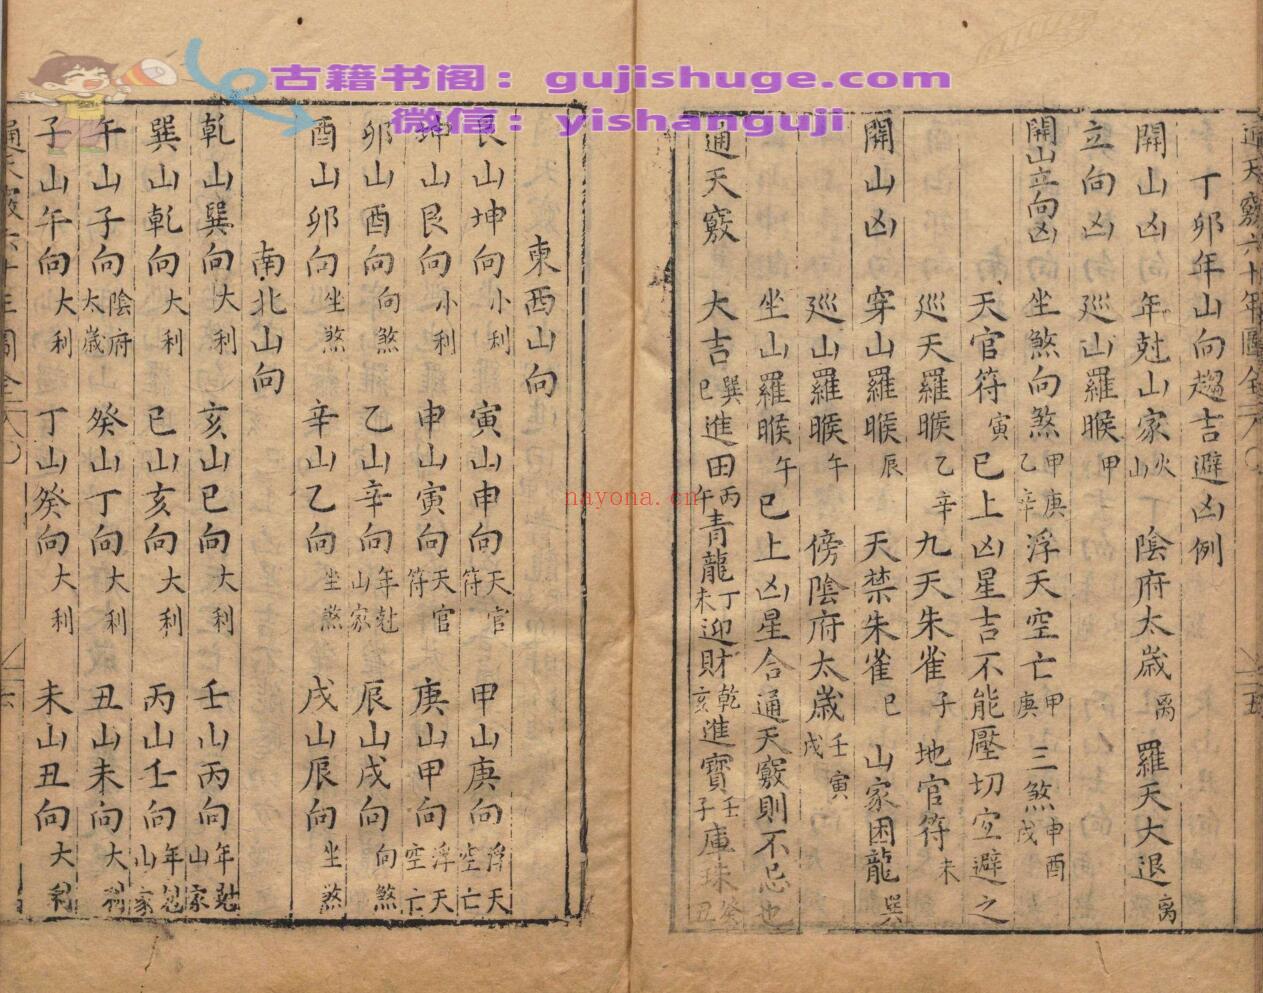 古籍书阁：gujishuge.com
微信：yishanguji
nayona.cn
丁卯年山向趨吉避凶例
開山凶 年尅山家火山 陰府太歲离 羅天大退离
立向凶 巡山羅睺甲
開山立向凶 坐煞向煞甲庚乙辛 浮天空亡甲庚 三煞申酉戌
天官符寅 已上凶星吉不能壓切宜避之
巡天羅睺乙辛 九天朱雀子 地官符未
開山凶 穿山羅睺辰 天禁朱雀巳 山家困龍巽
巡山羅睺午 傍陰府太歲壬寅戌
坐山羅睺午 已上凶星合通天竅則不忌也
通天竅 大吉巽巳進田丙午青龍丁未迎財乾亥進寶壬子庫珠癸丑
東西山向
艮山坤向小利 寅山申向天官符 甲山庚向浮天空亡
坤山艮向小利 申山寅向天官符 庚山甲向浮天空亡
卯山酉向向煞 乙山辛向年尅山家 辰山戌向向煞
酉山卯向坐煞 辛山乙向坐煞 戌山辰向坐煞
南北山向
乾山巽向大利 亥山巳向大利 壬山丙向年尅山家
巽山乾向大利 巳山亥向大利 丙山壬向年尅山家
午山子向陰府太歲 癸山丁向大利 丑山未向大利
子山午向大利 丁山癸向大利 未山丑向大利